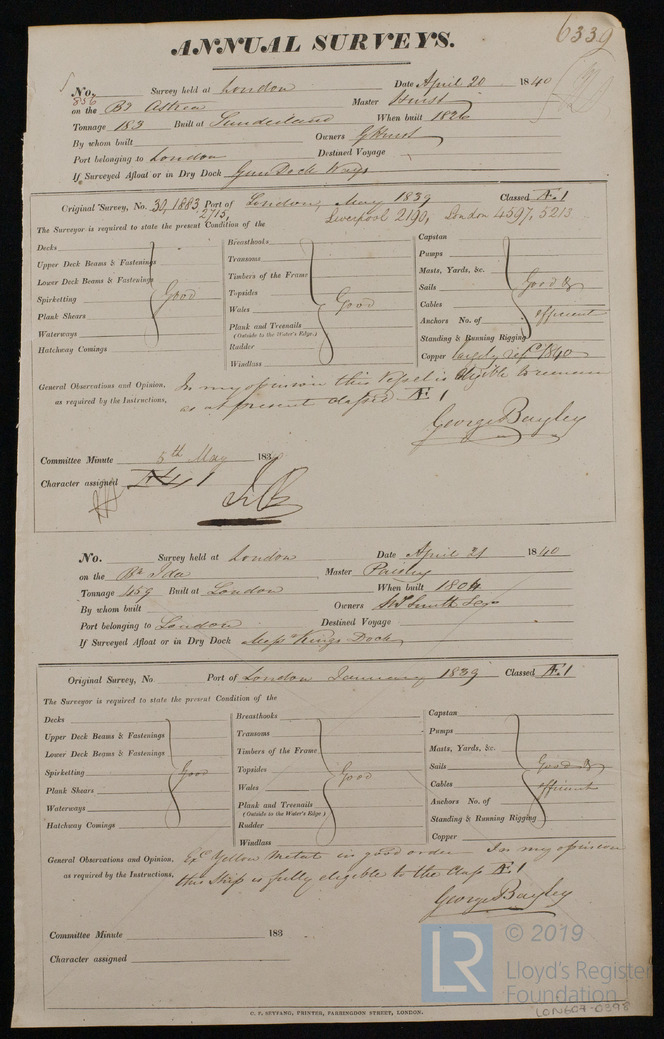 6339
ANNUAL SURVEYS.
No. 856 Survey held at London Date April 20 1840
on the Br Astrea Master Hurst
Tonnage 183 Built at Sunderland When built 1826
By whom built Owners G Hurst
Port belonging to London Destined Voyage
If Surveyed Afloat or in Dry Dock Gun Dock Wapg
Original Survey, No. 30, 1883 Port of London, May 1839 Classed Æ 1
2713, Liverpool 2190, London 4597, 5213
The Surveyor is required to state the present Condition of the
Decks
Upper Deck Beams & Fastenings
Lower Deck Beams & Fastenings
Spirketting Good
Plank Shears
Waterways
Hatchway Comings
Breasthooks
Transoms
Timbers of the Frame
Topsides
Wales Good
Plank and Treenails
(Outside to the Water's Edge.)
Rudder
Windlass
Capstan
Pumps
Masts, Yards, &c.
Sails Good &
Cables
Anchors No. of efficient
Standing & Running Rigging
Copper largely repd 1840
General Observations and Opinion, In my opinion this Vessel is eligible to remain
as required by the Instructions, as at present classed Æ 1
George Bayley
Committee Minute 5th May 183
Character assigned Æ 1
No. Survey held at London Date April 21 1840
on the Br Ida Master Paisley
Tonnage 459 Built at London When built 1804
By whom built Owners Smith &
Port belonging to London Destined Voyage
If Surveyed Afloat or in Dry Dock Messrs Kings Dock
Original Survey, No. Port of London January 1839 Classed Æ 1
The Surveyor is required to state the present Condition of the
Decks
Upper Deck Beams & Fastenings
Lower Deck Beams & Fastenings
Spirketting Good
Plank Shears
Waterways
Hatchway Comings
Breasthooks
Transoms
Timbers of the Frame
Topsides Good
Wales
Plank and Treenails
(Outside to the Water's Edge.)
Rudder
Windlass
Capstan
Pumps
Masts, Yards, &c.
Sails Good &
Cables efficient
Anchors No. of
Standing & Running Rigging
Copper
General Observations and Opinion, Yellow Metal in good order In my opinion
as required by the Instructions, this Ship is fully eligible to the Class Æ 1
George Bayley
Committee Minute 183
Character assigned
C. F. SEYFANG, PRINTER, FARRINGDON STREET, LONDON.
LR © 2019
Lloyd's Register
Foundation
LON604-0398